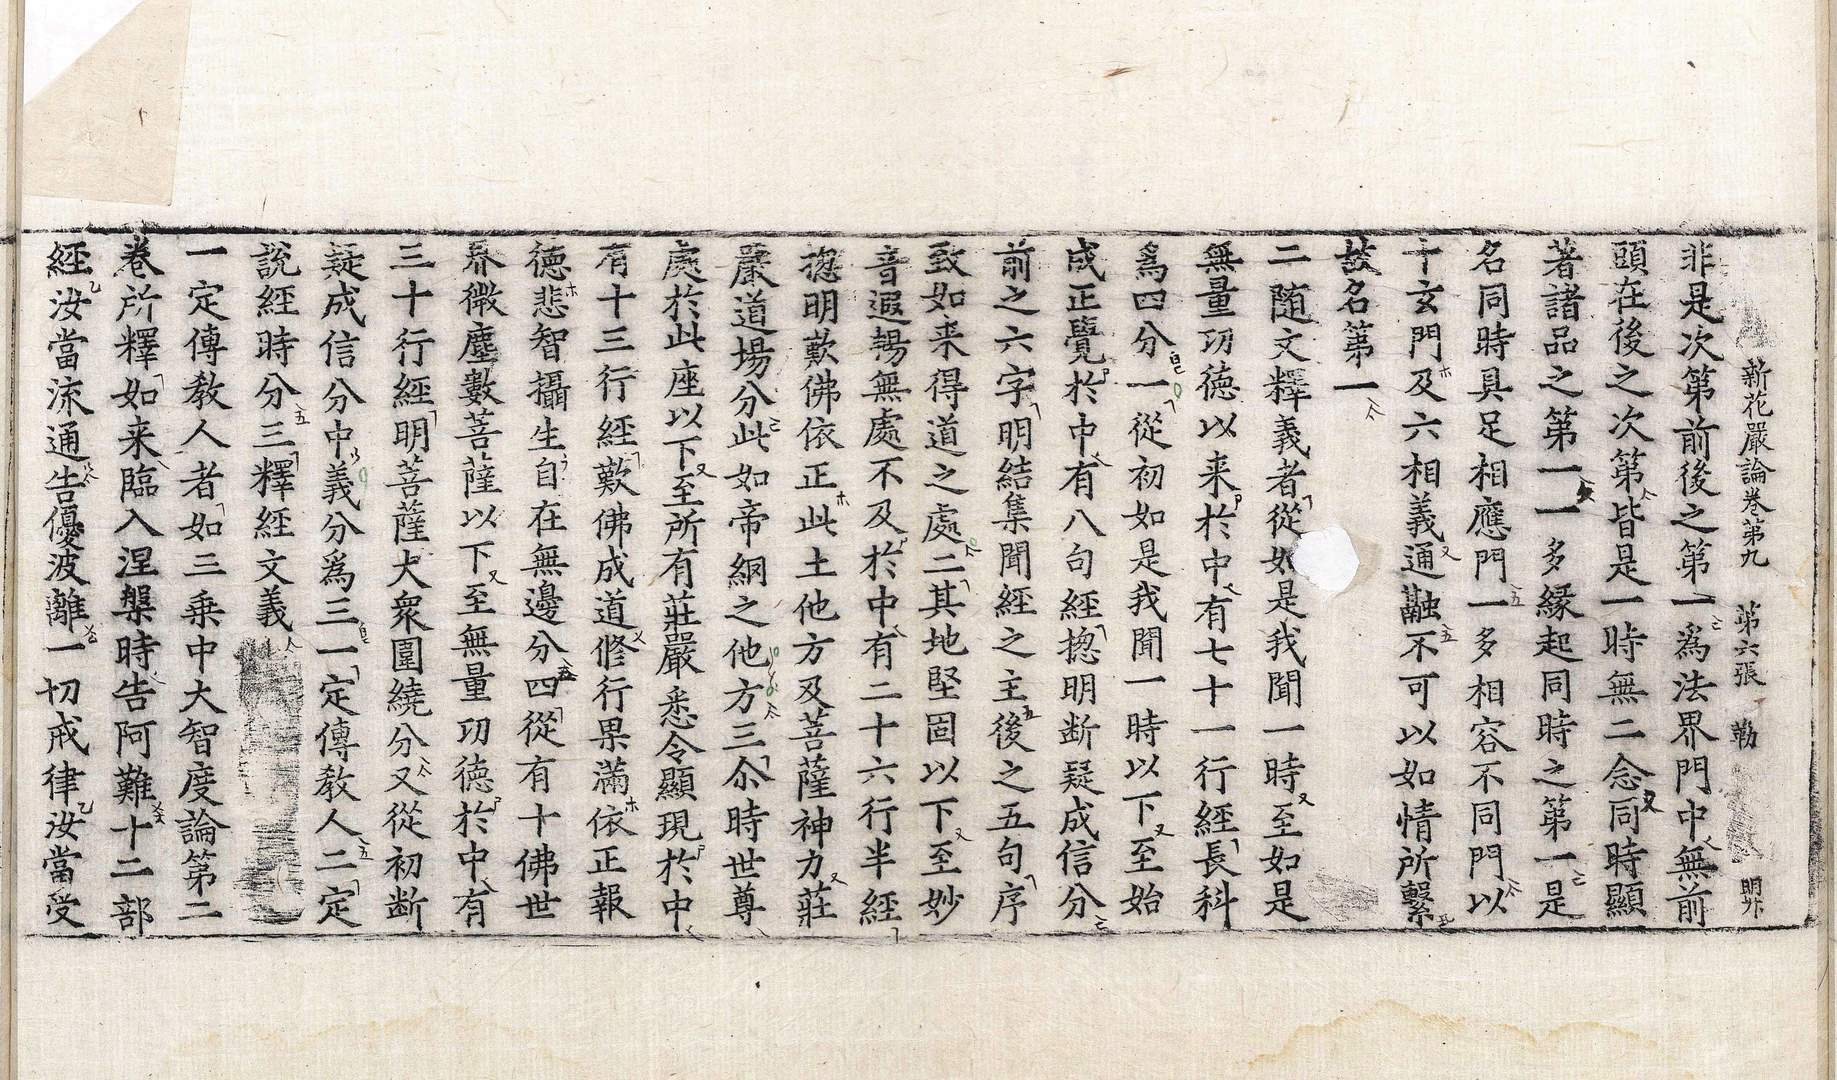 新花嚴論卷第九 第六張 勒 明外
非是次第前後之第一爲法界門中無前
頭在後之次第皆是一時無二念同時顯
著諸品之第一一多緣起同時之第一是
名同時具足相應門一多相容不同門以
十玄門及六相義通融不可以如情所繫
故名第一
二随文釋義者從如是我聞一時至如是
無量功德以来於中有七十一行經長科
爲四分一從初如是我聞一時以下至始
成正覺於中有八句經揔明断疑成信分
前之六字明結集聞經之主後之五句序
致如来得道之處二其地堅固以下至妙
音遐暢無處不及於中有二十六行半經
揔明歎佛依正此土他方及菩薩神力莊
嚴道場分此如帝網之他方三尒時世尊
處於此座以下至所有莊嚴悉令顯現於中
有十三行經歎佛成道修行果滿依正報
德悲智攝生自在無邊分四從有十佛世
界微塵數菩薩以下至無量功德於中有
三十行經明菩薩大衆圍繞分又從初断
疑成信分中義分爲三一定傳教人二定
說經時分三釋經文義
一定傳教人者如三乘中大智度論第二
卷所釋如来臨入涅槃時告阿難十二部
經汝當流通告優波離一切戒律汝當受